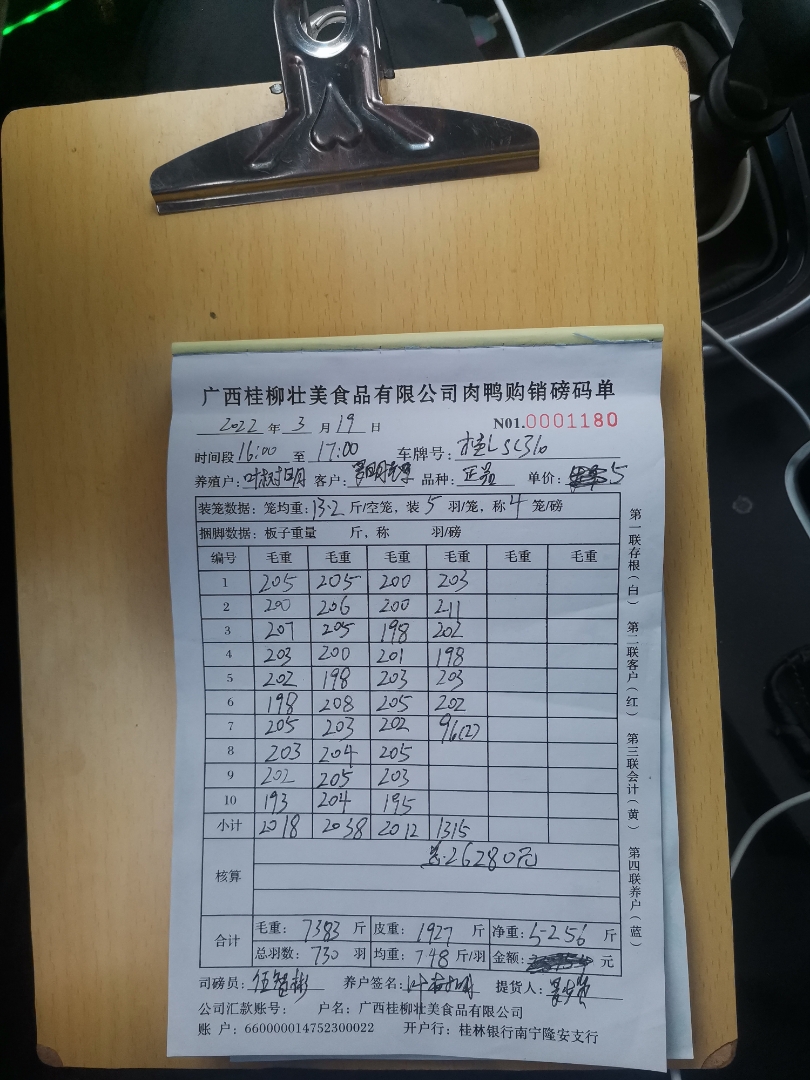 广西桂柳壮美食品有限公司肉鸭购销磅码单
2022 年 3 月 19 日 N01.0001180
时间段 16:00 至 17:00 车牌号: 桂L SC310
养殖户: 叶树明 客户: 品种: 正品 单价: 5
装笼数据: 笼均重: 13.2 斤/空笼, 装 5 羽/笼, 称 4 笼/磅
捆脚数据: 板子重量 斤, 称 羽/磅
编号 毛重 毛重 毛重 毛重 毛重 毛重
1 205 205 200 203
2 200 206 200 211
3 207 205 198 202
4 203 200 201 198
5 202 198 203 203
6 198 208 205 202
7 205 203 202 96(2)
8 203 204 205
9 202 205 203
10 193 204 195
小计 2018 2038 2012 1315
核算 26280元
合计 毛重: 7383 斤 皮重: 1927 斤 净重: 5256 斤
总羽数: 730 羽 均重: 7.48 斤/羽 金额: 元
司磅员: 伍智彬 养户签名: 叶树明 提货人:
公司汇款账号: 户名: 广西桂柳壮美食品有限公司
账 户: 660000014752300022 开户行: 桂林银行南宁隆安支行
第一联存根(白) 第二联客户(红) 第三联会计(黄) 第四联养户(蓝)